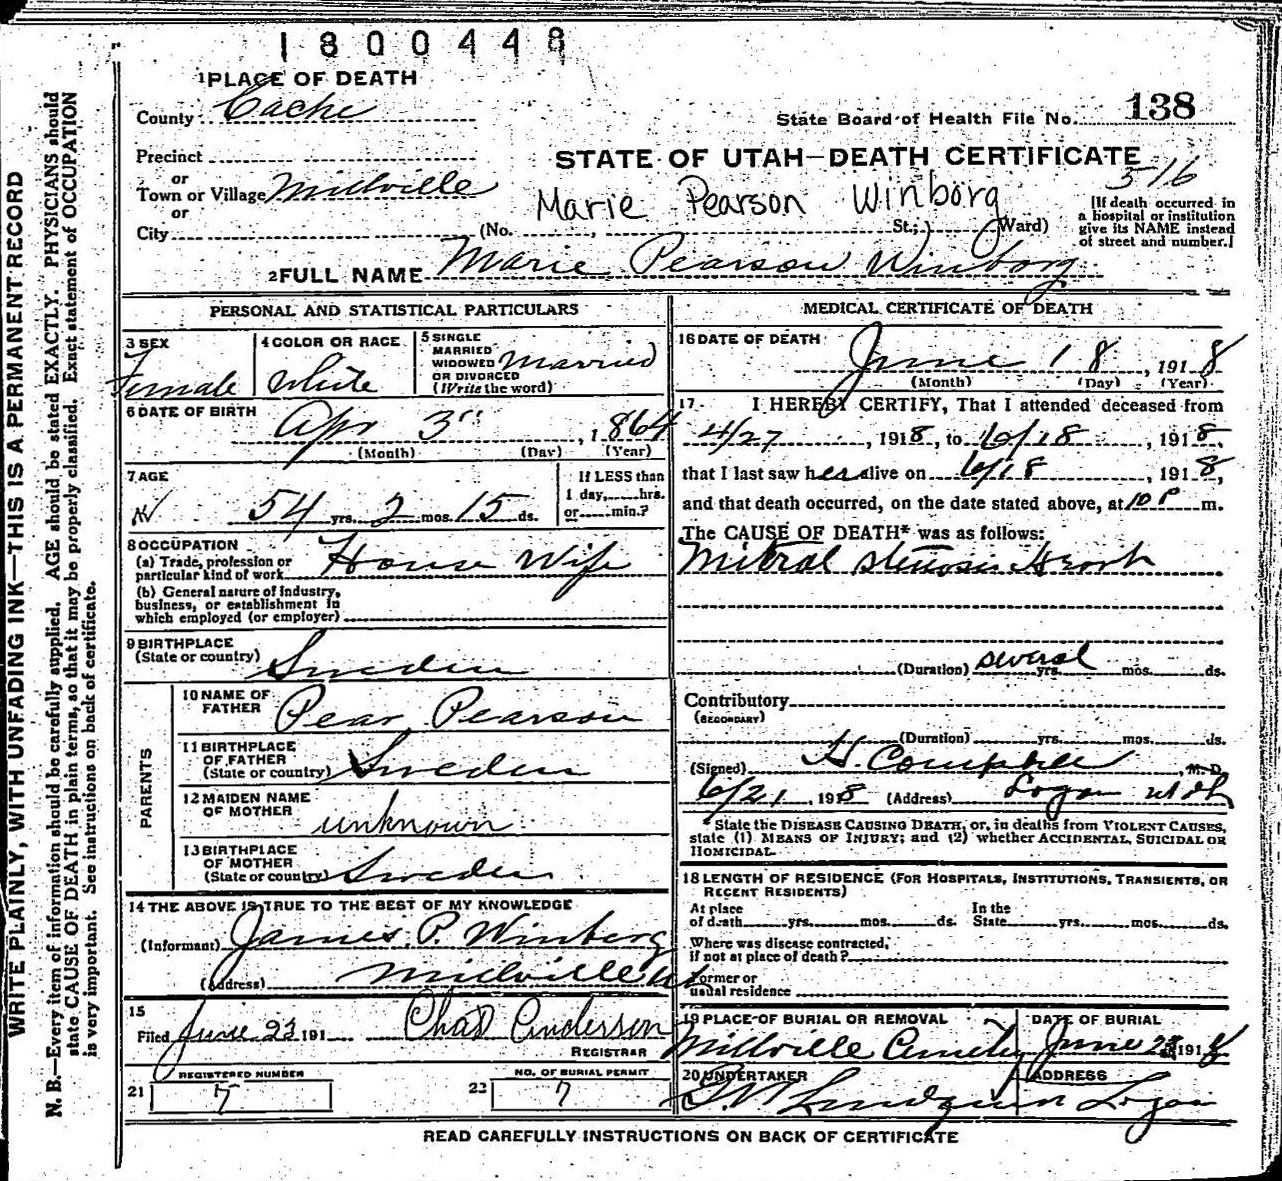 1800448
1 PLACE OF DEATH
County Cache
State Board of Health File No. 138
Precinct
STATE OF UTAH—DEATH CERTIFICATE
or
516
Town or Village Millville
Marie Pearson Winborg
or
City (No. , St.; Ward)
[If death occurred in
a hospital or institution
give its NAME instead
of street and number.]
2 FULL NAME Marie Pearson Winborg
PERSONAL AND STATISTICAL PARTICULARS
3 SEX
Female
4 COLOR OR RACE
White
5 SINGLE
MARRIED
WIDOWED
OR DIVORCED
(Write the word)
Married
6 DATE OF BIRTH
Apr 3 , 1864
(Month) (Day) (Year)
7 AGE
54 yrs. 2 mos. 15 ds.
If LESS than
1 day, hrs.
or min.?
8 OCCUPATION
(a) Trade, profession or
particular kind of work House Wife
(b) General nature of industry,
business, or establishment in
which employed (or employer)
9 BIRTHPLACE
(State or country) Sweden
PARENTS
10 NAME OF
FATHER Pear Pearson
11 BIRTHPLACE
OF FATHER
(State or country) Sweden
12 MAIDEN NAME
OF MOTHER unknown
13 BIRTHPLACE
OF MOTHER
(State or country) Sweden
14 THE ABOVE IS TRUE TO THE BEST OF MY KNOWLEDGE
(Informant) James P. Winberg
(Address) Millville Ut
15
Filed June 23 191 Chas Anderson
REGISTRAR
REGISTERED NUMBER
21 7
NO. OF BURIAL PERMIT
22 7
MEDICAL CERTIFICATE OF DEATH
16 DATE OF DEATH
June 18 , 1918
(Month) (Day) (Year)
17 I HEREBY CERTIFY, That I attended deceased from
4/27 , 1918, to 6/18 , 1918,
that I last saw her alive on 6/18 , 1918,
and that death occurred, on the date stated above, at 10 P m.
The CAUSE OF DEATH* was as follows:
Mitral stenosis Heart
(Duration) several yrs. mos. ds.
Contributory
(SECONDARY)
(Duration) yrs. mos. ds.
(Signed) H. Campbell , M. D.
6/21 , 1918 (Address) Logan Utah
State the DISEASE CAUSING DEATH, or, in deaths from VIOLENT CAUSES,
state (1) MEANS OF INJURY; and (2) whether ACCIDENTAL, SUICIDAL OR
HOMICIDAL.
18 LENGTH OF RESIDENCE (FOR HOSPITALS, INSTITUTIONS, TRANSIENTS, OR
RECENT RESIDENTS)
At place
of death yrs. mos. ds.
In the
State yrs. mos. ds.
Where was disease contracted,
if not at place of death?
Former or
usual residence
19 PLACE OF BURIAL OR REMOVAL
Millville Cemetry
DATE OF BURIAL
June 1918
20 UNDERTAKER
Lundquist
ADDRESS
Logan
READ CAREFULLY INSTRUCTIONS ON BACK OF CERTIFICATE
WRITE PLAINLY, WITH UNFADING INK—THIS IS A PERMANENT RECORD
N. B.—Every item of information should be carefully supplied. AGE should be stated EXACTLY. PHYSICIANS should
state CAUSE OF DEATH in plain terms, so that it may be properly classified. Exact statement of OCCUPATION
is very important. See instructions on back of certificate.